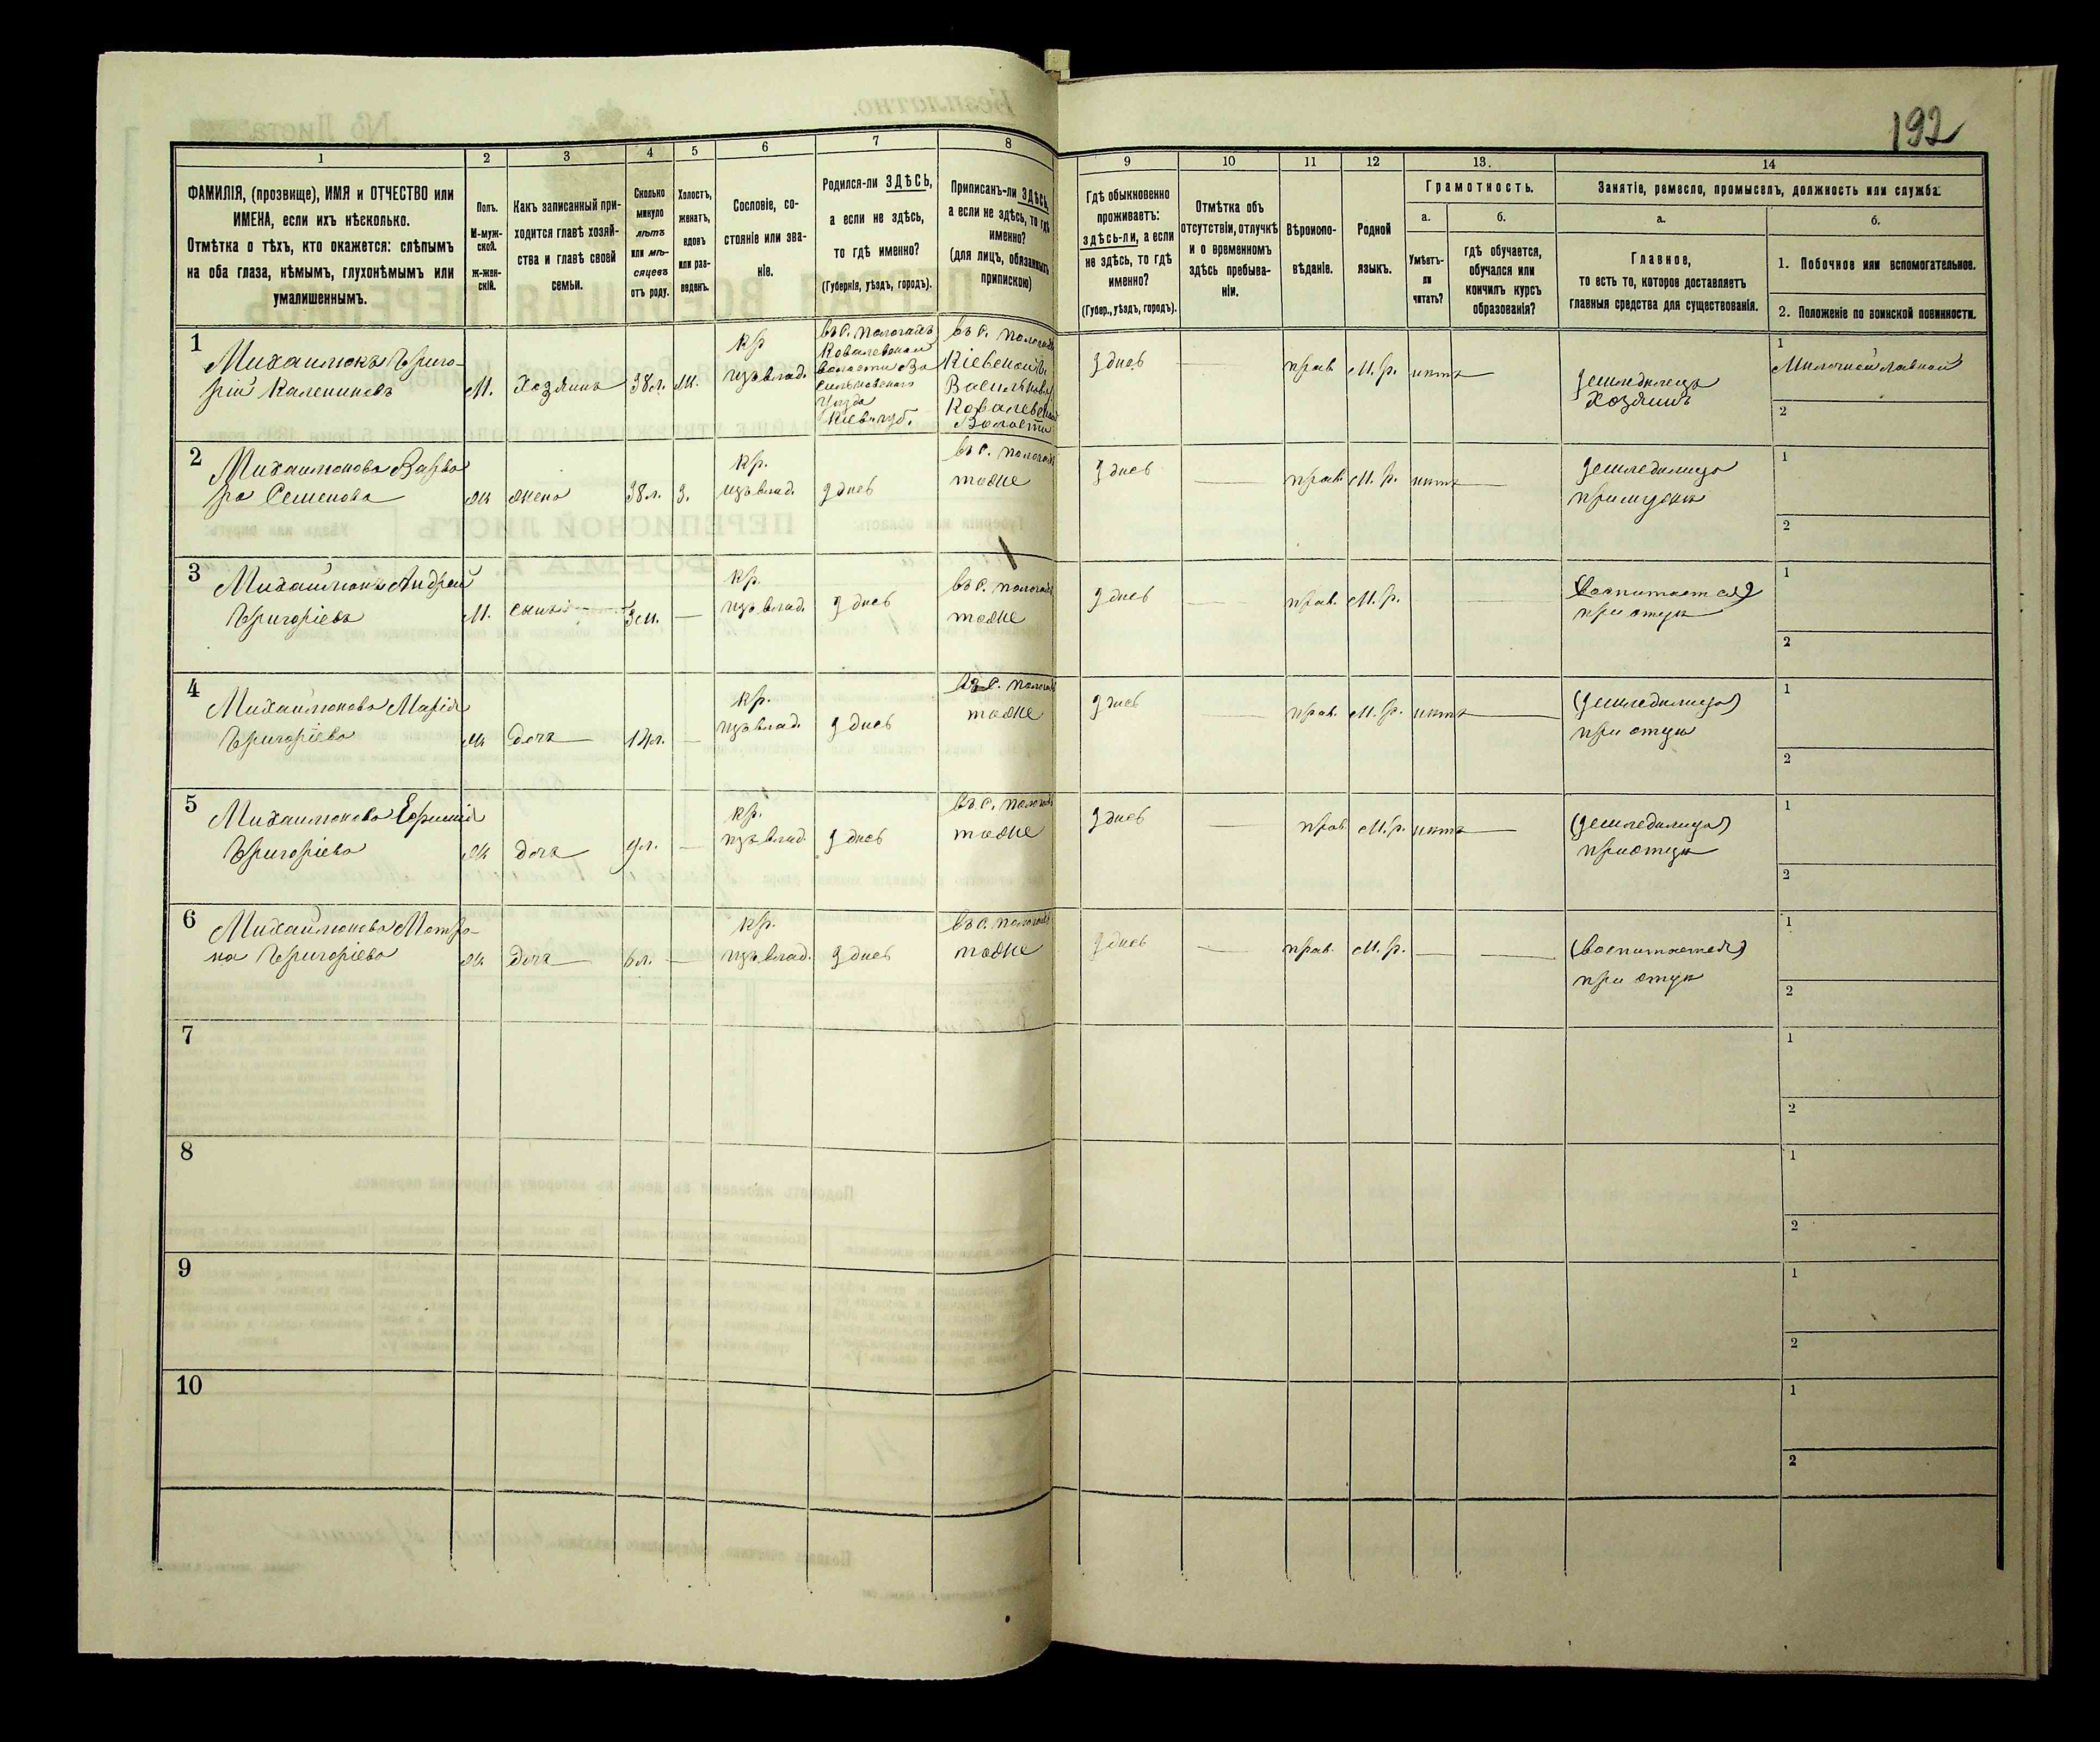 192
1
2
3
4
5
6
7
8
9
10
11
12
13.
14
ФАМИЛІЯ, (прозвище), ИМЯ и ОТЧЕСТВО или
ИМЕНА, если ихъ нѣсколько.
Отмѣтка о тѣхъ, кто окажется: слѣпымъ
на оба глаза, нѣмымъ, глухонѣмымъ или
умалишеннымъ.
Полъ.
М-муж-
ской.
Ж-жен-
скій.
Какъ записанный при-
ходится главѣ хозяй-
ства и главѣ своей
семьи.
Сколько
минуло
лѣтъ
или мѣ-
сяцевъ
отъ роду.
Холостъ,
женатъ,
вдовъ
или раз-
веденъ.
Сословіе, со-
стояніе или зва-
ніе.
Родился-ли ЗДѢСЬ,
а если не здѣсь,
то гдѣ именно?
(Губернія, уѣздъ, городъ).
Приписанъ-ли ЗДѢСЬ,
а если не здѣсь, то гдѣ
именно?
(для лицъ, обязанныхъ
припискою)
Гдѣ обыкновенно
проживаетъ:
здѣсь-ли, а если
не здѣсь, то гдѣ
именно?
(Губер., уѣздъ, городъ).
Отмѣтка объ
отсутствіи, отлучкѣ
и о временномъ
здѣсь пребыва-
ніи.
Вѣроиспо-
вѣданіе.
Родной
языкъ.
Грамотность.
а.
б.
Умѣетъ-
ли
читать?
гдѣ обучается,
обучался или
кончилъ курсъ
образованія?
Занятіе, ремесло, промыселъ, должность или служба.
а.
б.
Главное,
то есть то, которое доставляетъ
главныя средства для существованія.
1. Побочное или вспомогательное.
2. Положеніе по воинской повинности.
1
Михайлюкъ Григо-
рій Калениковъ
М. Хозяинъ 38 л. Ж.
кр.
изъ влад.
въ с. Пологахъ
Ковалевской
волости Ва
сильковскаго
уѣзда
Кіев. губ.
въ с. Пологахъ
Кіевской
Васильков.
Ковалевской
Волости
здесь — прав. М. р. нетъ
земледелецъ
Хозяинъ
1
2
2
Михайлюкова Варва
ра Семенова
Ж жена 38 л. З.
кр.
изъ влад.
здесь
въ с. Пологахъ
тоже
здесь — прав. М. р. нетъ —
земледелица
при муже
1
2
3
Михайлюкъ Андрей
Григоріевъ
М. сынъ 3 м. —
кр.
изъ влад.
здесь
въ с. Пологахъ
тоже
здесь — прав. М. р. —
(воспитается)
при отце
1
2
4
Михайлюкова Марія
Григоріева
Ж дочь 14 л. —
кр.
изъ влад.
здесь
въ с. Пологахъ
тоже
здесь — прав. М. р. нетъ —
(земледелица)
при отце
1
2
5
Михайлюкова Ефимія
Григоріева
Ж дочь 9 л. —
кр.
изъ влад.
здесь
въ с. Пологахъ
тоже
здесь — прав. М. р. нетъ —
(земледелица)
при отце
1
2
6
Михайлюкова Матро-
на Григоріева
Ж дочь 6 л. —
кр.
изъ влад.
здесь
въ с. Пологахъ
тоже
здесь — прав. М. р. — —
(воспитается)
при отце
1
2
7
1
2
8
1
2
9
1
2
10
1
2